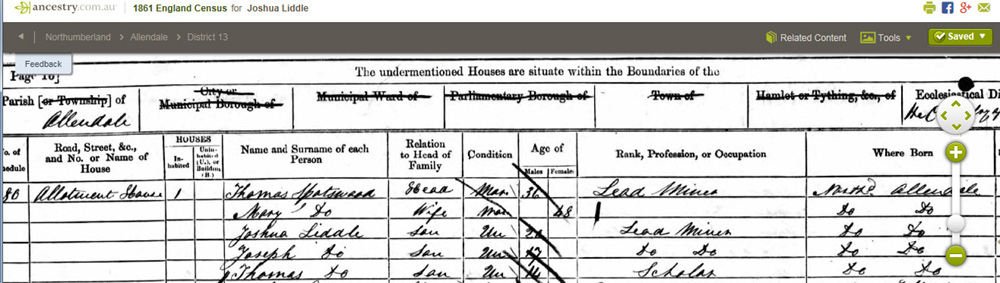 ancestry.com.au 1861 England Census for Joshua Liddle
Northumberland > Allendale > District 13 Related Content Tools Saved
Feedback
Page 16]
The undermentioned Houses are situate within the Boundaries of the
Parish [or Township] of City or Municipal Borough of Municipal Ward of Parliamentary Borough of Town of Hamlet or Tything, &c., of Ecclesiastical Di
Allendale
No. of Schedule Road, Street, &c., and No. or Name of House HOUSES In-habited Unin-habited (U.), or Building (B.) Name and Surname of each Person Relation to Head of Family Condition Age of Males Females Rank, Profession, or Occupation Where Born
80 Allotment House 1 Thomas Spotswood Head Mar 36 Lead Miner North^d Allendale
Mary Do Wife Mar 48 Do Do
Joshua Liddle Son Un 20 Lead Miner Do Do
Joseph Do Son Un 17 Do Do Do Do
Thomas Do Son Un 14 Scholar Do Do